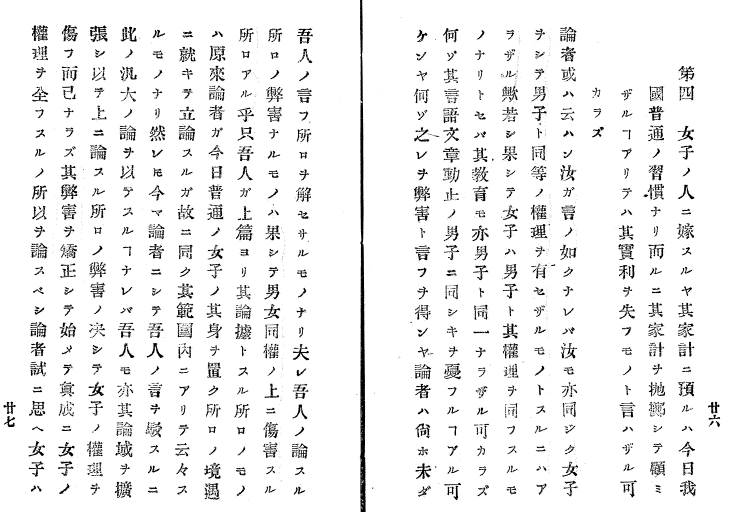 第四　女子ノ人ニ嫁スルヤ其家計ニ預ルハ今日我
國普通ノ習慣ナリ而ルニ其家計ヲ抛擲シテ顧ミ
ザルヿアリテハ其實利ヲ失フモノト言ハザル可
カラズ
論者或ハ云ハン汝ガ言ノ如クナレバ汝モ亦同ジク女子
ヲシテ男子ト同等ノ權理ヲ有セザルモノトスルニハア
ラザル歟若シ果シテ女子ハ男子ト其權理ヲ同フスルモ
ノナリトセバ其教育モ亦男子ト同一ナラザル可カラズ
何ゾ其言語文章動止ノ男子ニ同シキヲ憂フルヿアル可
ケンヤ何ゾ之レヲ弊害ト言フヲ得ンヤ論者ハ尙ホ未ダ
廿六
吾人ノ言フ所ロヲ解セサルモノナリ夫レ吾人ノ論スル
所ロノ弊害ナルモノハ果シテ男女同權ノ上ニ傷害スル
所ロアル乎只吾人ガ上篇ヨリ其論據トスル所ロノモノ
ハ原來論者ガ今日普通ノ女子ノ其身ヲ置ク所ロノ境遇
ニ就キテ立論スルガ故ニ同ク其範圍內ニアリテ云々ス
ルモノナリ然レ𪜈今マ論者ニシテ吾人ノ言ヲ駁スルニ
此ノ汎大ノ論ヲ以テスルヿナレバ吾人モ亦其論域ヲ擴
張シ以テ上ニ論スル所ロノ弊害ノ決シテ女子ノ權理ヲ
傷フ而已ナラズ其弊害ヲ矯正シテ始メテ眞成ニ女子ノ
權理ヲ全フスルノ所以ヲ論スベシ論者試ニ思ヘ女子ハ
廿七